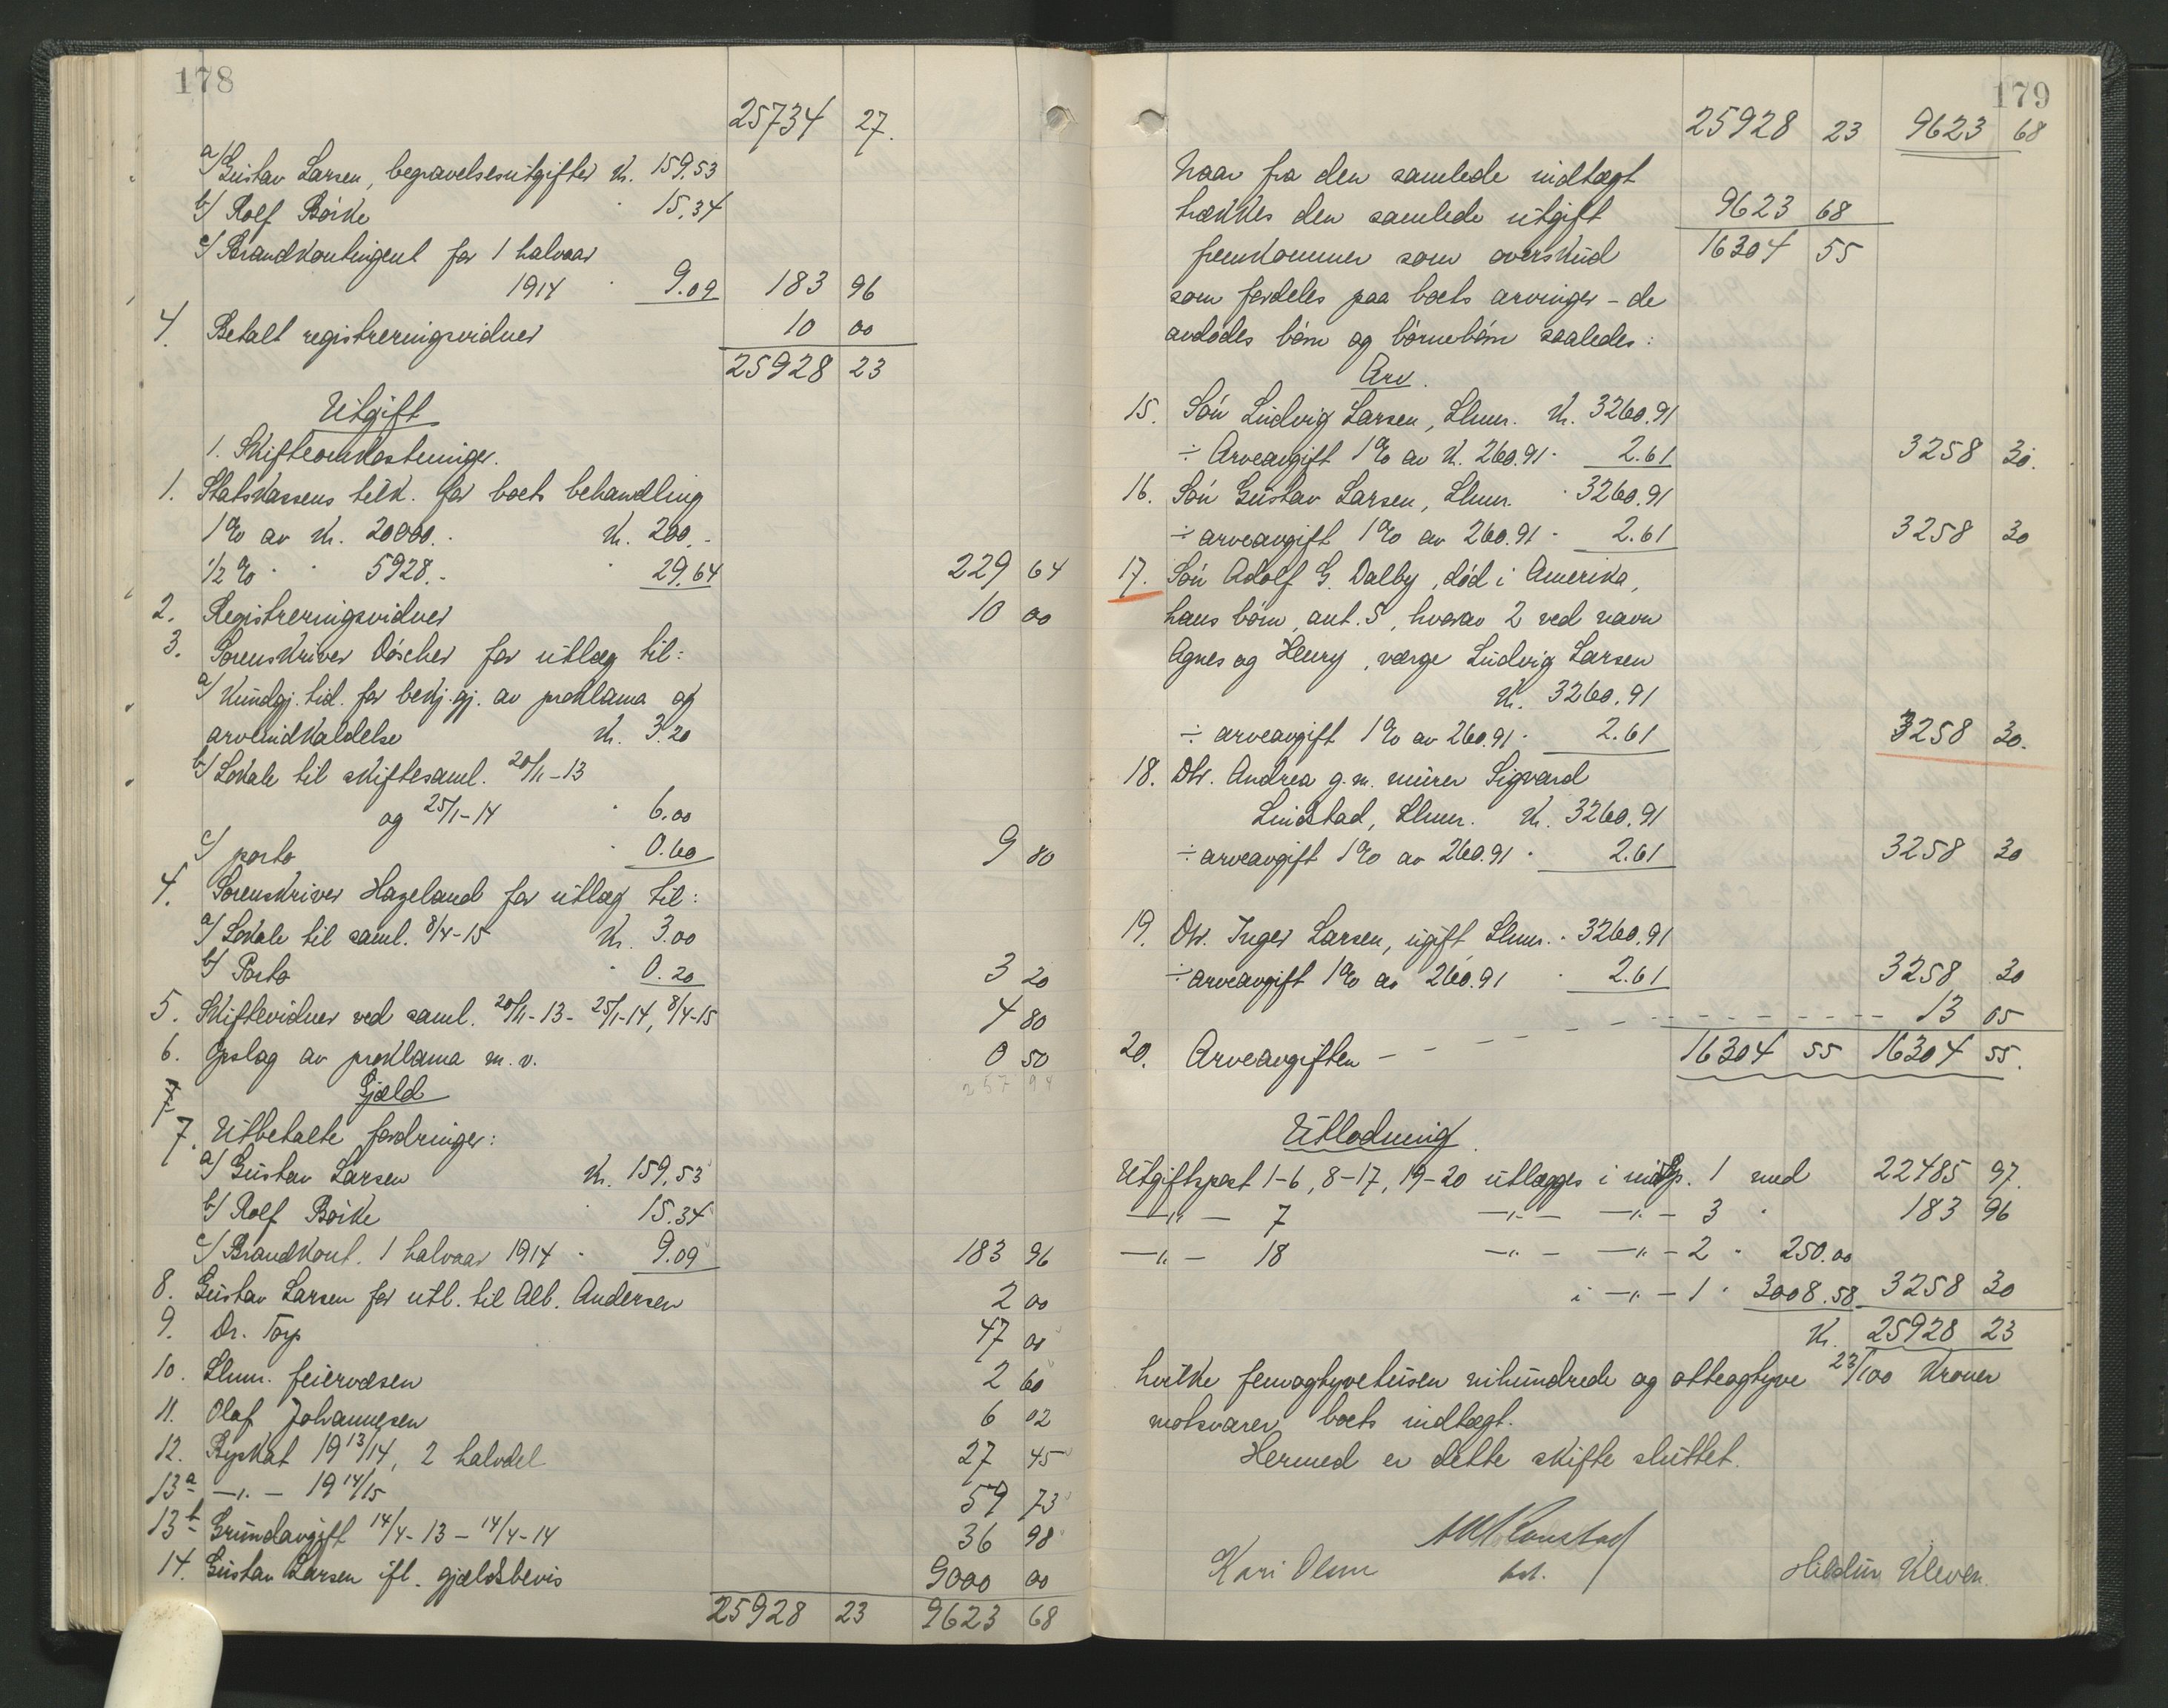 178
25734 27.
a/ Gustav Larsen, begravelsesutgifter Kr. 159.53
b/ Rolf Böike " 15.34
c/ Brandkontingent for 1 halvaar
1914 " 9.09 183 96
4. Betalt registreringsvidner 10 00
25928 23
Utgift
1. Skifteomkostninger.
1. Statskassens tilk. for boets behandling
1% av Kr. 20000.- Kr. 200.-
1/2 % " " 5928.- " 29.64 229 64
2. Registreringsvidner 10 00
3. Sorenskriver Döscher for utlæg til:
a/ Kundgj. tid. for bekj.gj. av proklama og
arveindkaldelse Kr. 3.20
b/ Lokale til skiftesaml. 20/11-13
og 25/1-14 " 6.00
c/ porto " 0.60 9 80
4. Sorenskriver Hazeland for utlæg til:
a/ Lokale til saml. 8/4-15 Kr. 3.00
b/ Porto " 0.20 3 20
5. Skiftevidner ved saml. 20/11-13 - 25/1-14, 8/4-15 4 80
6. Opslag av proklama m.v. 0 50
257 94
7 Gjæld
7. Utbetalte fordringer:
a/ Gustav Larsen Kr. 159.53
b/ Rolf Böike " 15.34
c/ Brandkont. 1 halvaar 1914 " 9.09 183 96
8. Gustav Larsen for utl. til Alb. Andersen 2 00
9. Dr. Torp 47 00
10. Llmr. feiervæsen 2 60
11. Olaf Johannesen 6 02
12. Byskat 1913/14, 2 halvdel 27 45
13a -"- 1914/15 59 73
13b Grundavgift 14/4-13 - 14/4-14 36 98
14. Gustav Larsen ifl. gjældsbevis 9000 00
25928 23 9623 68
179
25928 23 9623 68
Naar fra den samlede indtægt
trækkes den samlede utgift 9623 68
fremkommer som overskud 16304 55
som fordeles paa boets arvinger - de
avdödes börn og börnebörn saaledes:
Arv.
15. Sön Ludvig Larsen, Llmr. Kr. 3260.91
÷ Arveavgift 1% av K. 260.91 " 2.61 3258 30.
16. Sön Gustav Larsen, Llmr. " 3260.91
÷ arveavgift 1% av 260.91 " 2.61 3258 30
17. Sön Adolf G. Dalby, död i Amerika,
hans börn, ant. 5, hvorav 2 ved navn
Agnes og Henry, værge Ludvig Larsen
Kr. 3260.91
÷ arveavgift 1% av 260.91 " 2.61 3258 30.
18. Dtr. Andrea g.m. murer Sigvard
Lindstad, Llmr. Kr. 3260.91
÷ arveavgift 1% av 260.91 " 2.61 3258 30
19. Dtr. Inger Larsen, ugift, Llmr. " 3260.91
÷ arveavgift 1% av 260.91 " 2.61 3258 30
13 05
20. Arveavgiften - - - - 16304 55 16304 55.
Utlodning
Utgiftspost 1-6, 8-17, 19-20 utlægges i indtp. 1 med 22485 97.
-"- 7 -"- -"- 3 " 183 96
-"- 18 -"- -"- 2 " 250.00
i -"- 1 " 3008.58 3258 30
Kr. 25928 23
hvilke femogtyvetusen nihundrede og otteogtyve 23/100 Kroner
motsvarer boets indtægt.
Hermed er dette skifte sluttet.
Kari Olsen
Kleven